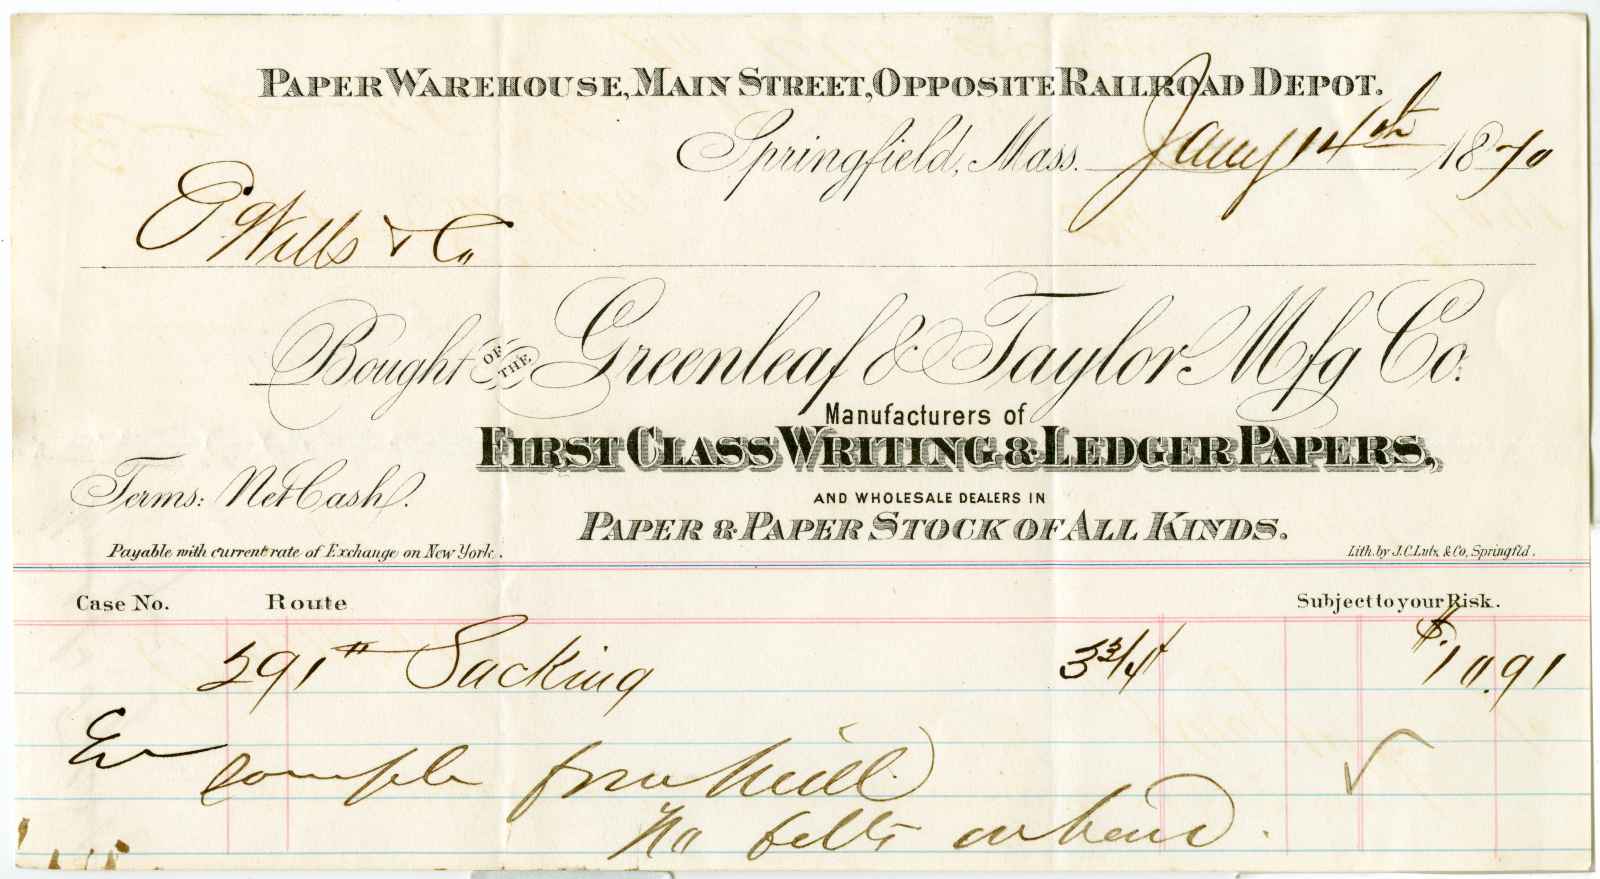 PAPER WAREHOUSE, MAIN STREET, OPPOSITE RAILROAD DEPOT.
Springfield, Mass. Jany 14th 1870
E. Wills & Co
Bought OF THE Greenleaf & Taylor Mfg Co.
Manufacturers of
FIRST CLASS WRITING & LEDGER PAPERS,
Terms: Net Cash.
AND WHOLESALE DEALERS IN
PAPER & PAPER STOCK OF ALL KINDS.
Payable with current rate of Exchange on New York.
Lith. by J.C. Lutz, & Co, Springfld.
Case No. Route Subject to your Risk.
291# Sacking 3 3/4 $10.91
sample from Mill.
No felts on hand.